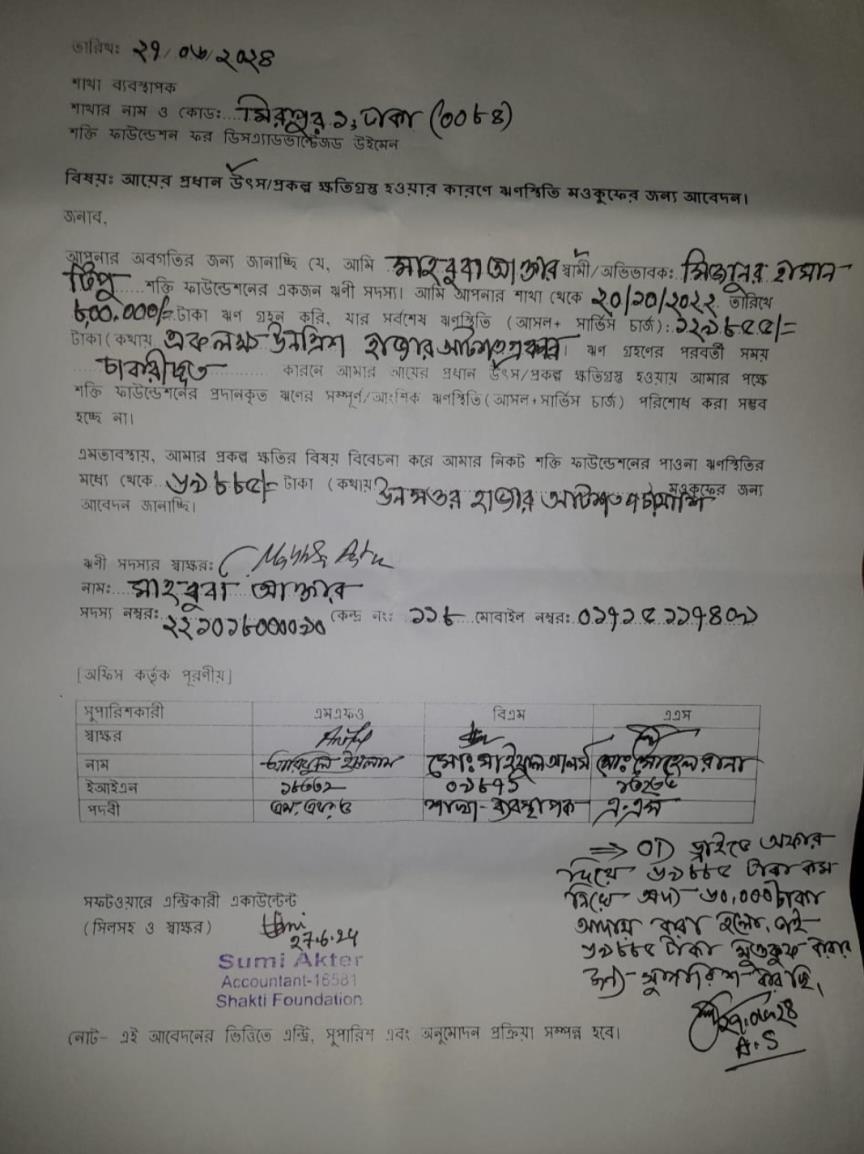 তারিখ: ২৭/০৬/২০২৪
শাখা ব্যবস্থাপক
শাখার নাম ও কোড: মিরপুর ১, ঢাকা (০০৮৪)
শক্তি ফাউন্ডেশন ফর ডিসএ্যাডভান্টেজড উইমেন
বিষয়: আয়ের প্রধান উৎস/প্রকল্প ক্ষতিগ্রস্থ হওয়ার কারণে ঋণস্থিতি মওকুফের জন্য আবেদন।
জনাব,
আপনার অবগতির জন্য জানাচ্ছি যে, আমি মাহবুবা আক্তার স্বামী/অভিভাবক: মিজানুর হাসান
টিপু শক্তি ফাউন্ডেশনের একজন ঋণী সদস্য। আমি আপনার শাখা থেকে ২০/১০/২০২২ তারিখে
৮,০০,০০০/= টাকা ঋণ গ্রহন করি, যার সর্বশেষ ঋণস্থিতি (আসল+ সার্ভিস চার্জ): ১২৯৮৫৫/=
টাকা (কথায় এক লক্ষ উনত্রিশ হাজার আটশত পঞ্চান্ন। ঋণ গ্রহণের পরবর্তী সময়
চাকরীচ্যুত কারনে আমার আয়ের প্রধান উৎস/প্রকল্প ক্ষতিগ্রস্থ হওয়ায় আমার পক্ষে
শক্তি ফাউন্ডেশনের প্রদানকৃত ঋণের সম্পূর্ণ/আংশিক ঋণস্থিতি (আসল+সার্ভিস চার্জ) পরিশোধ করা সম্ভব
হচ্ছে না।
এমতাবস্থায়, আমার প্রকল্প ক্ষতির বিষয় বিবেচনা করে আমার নিকট শক্তি ফাউন্ডেশনের পাওনা ঋণস্থিতির
মধ্যে থেকে ৬৯৮৮৫/= টাকা (কথায় উনসত্তর হাজার আটশত পঁচাশি মওকুফের জন্য
আবেদন জানাচ্ছি।
ঋণী সদস্যর স্বাক্ষর:
নাম: মাহবুবা আক্তার
সদস্য নম্বর: ২২১০১৮০০০০১০ কেন্দ্র নং: ১১৮ মোবাইল নম্বর: ০১৭১৫১১৭৪০৯
[অফিস কর্তৃক পূরণীয়]
সুপারিশকারী এমএফও বিএম এএস
স্বাক্ষর
নাম আরিফুল ইসলাম মোঃ সাইফুল আলম মোঃ সোহেল রানা
ইআইএন
পদবী এম.এফ.ও শাখা-ব্যবস্থাপক এ.এস
⇒ OD ড্রাইভে অফার
দিয়ে ৬৯৮৮৫ টাকা কম
নিয়ে ৬০,০০০ টাকা
আদায় করা হলো, তাই
৬৯৮৮৫ টাকা মওকুফ করার
জন্য সুপারিশ করছি,
২৭.০৬.২৪
A.S
সফটওয়ারে এন্ট্রিকারী একাউন্টেন্ট
(সিলসহ ও স্বাক্ষর)
27.6.24
Sumi Akter
Accountant-16581
Shakti Foundation
নোট- এই আবেদনের ভিত্তিতে এন্ট্রি, সুপারিশ এবং অনুমোদন প্রক্রিয়া সম্পন্ন হবে।